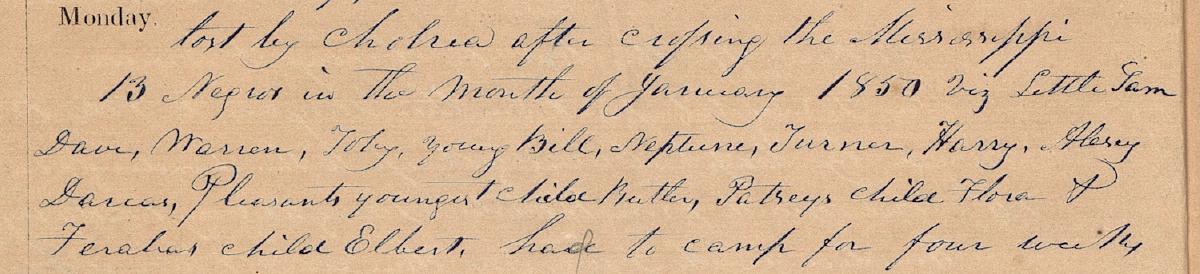 Monday.
lost by Cholrea after crossing the Mississippi
13 Negros in the Month of January 1850 viz Little Sam
Dave, Warren, Toby, young Bill, Neptune, Turner, Harry, Alesey
Darcas, Pleasants youngest child Butler, Patseys child Flora &
Ferabas child Elbert. had to camp for four weeks